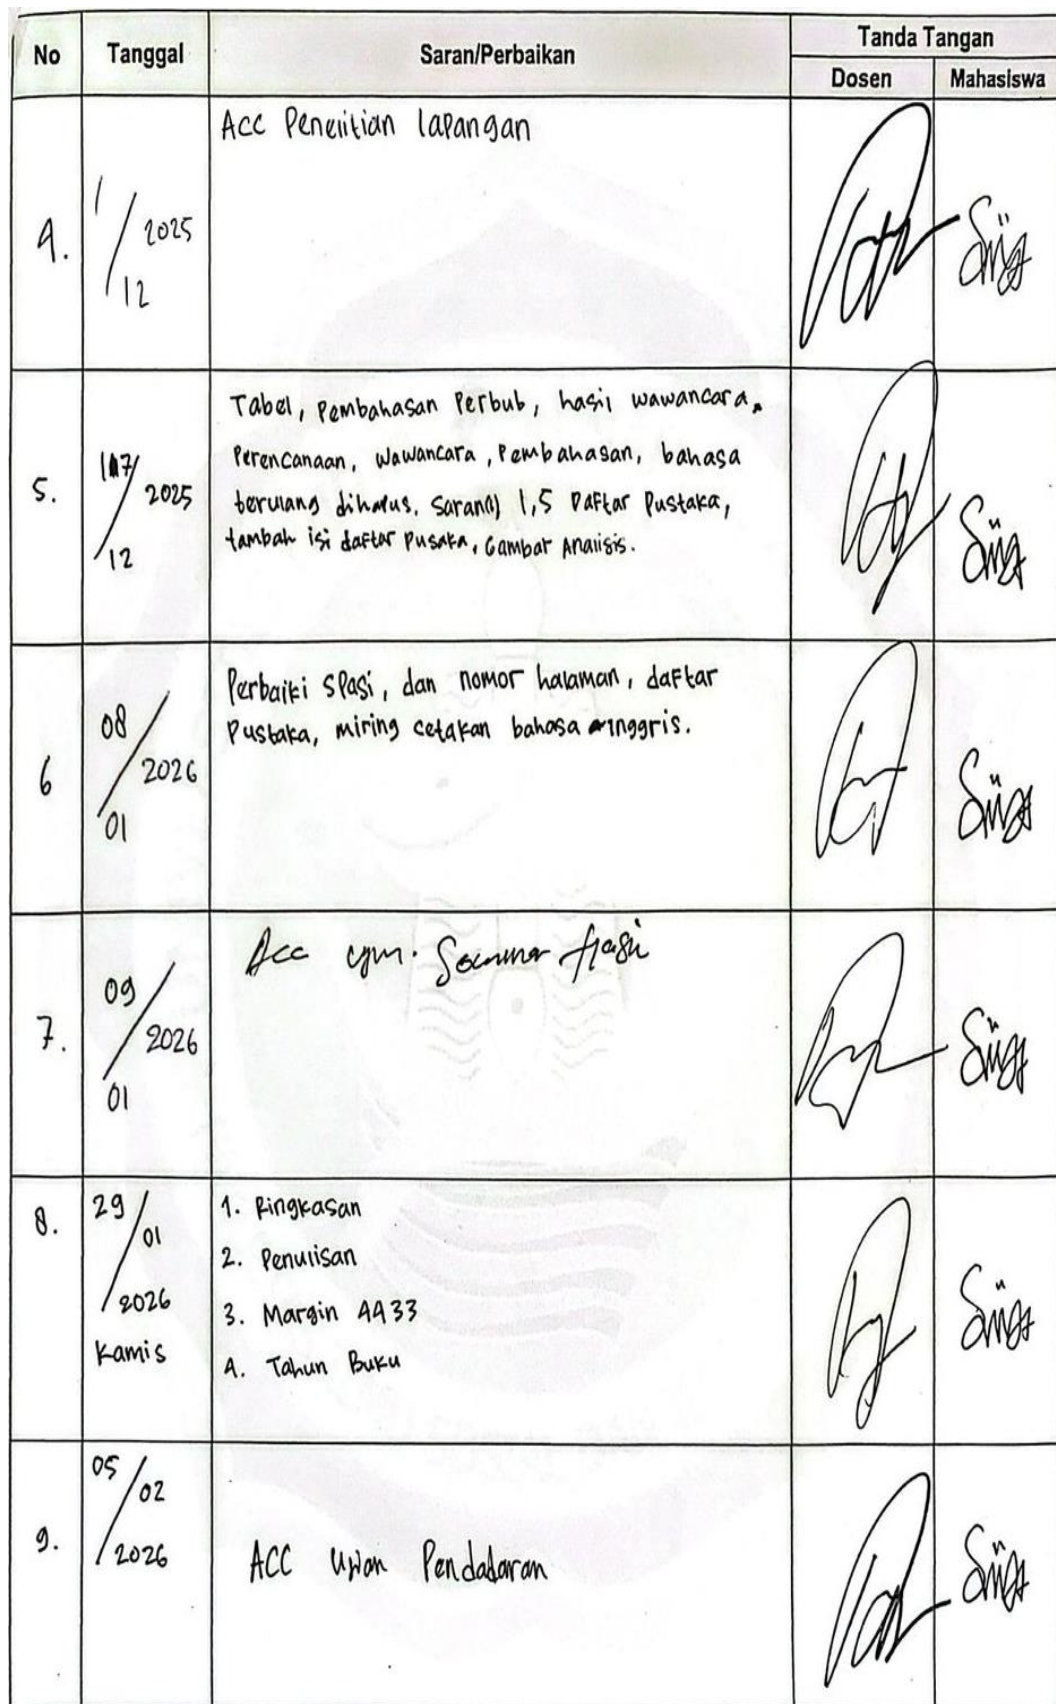 No Tanggal Saran/Perbaikan Tanda Tangan
Dosen Mahasiswa
4. 1/12 2025 Acc Penelitian lapangan
5. 17/12 2025 Tabel, Pembahasan Perbub, hasil wawancara,
Perencanaan, wawancara, Pembahasan, bahasa
terulang dihapus, saran 1,5 Daftar Pustaka,
tambah isi daftar Pusaka, Gambar Analisis.
6 08/01 2026 Perbaiki spasi, dan nomor halaman, daftar
Pustaka, miring cetakan bahasa inggris.
7. 09/01 2026 Acc Seminar Hasil
8. 29/01/2026 Kamis
1. Ringkasan
2. Penulisan
3. Margin 4433
4. Tahun Buku
9. 05/02/2026 ACC Ujian Pendadaran